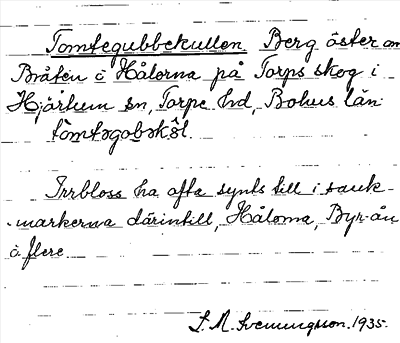 Tomtegubbekullen. Berg öster om
Bråten i Hålorna på Torps skog i
Hjärtum sn, Torpe hd, Bohus län
tòmtəgobəkə̂l.
Irrbloss ha ofta synts till i sank-
markerna därintill, Hålorna, Byr-ån
à flere.
S. M. Svenungsson. 1935.